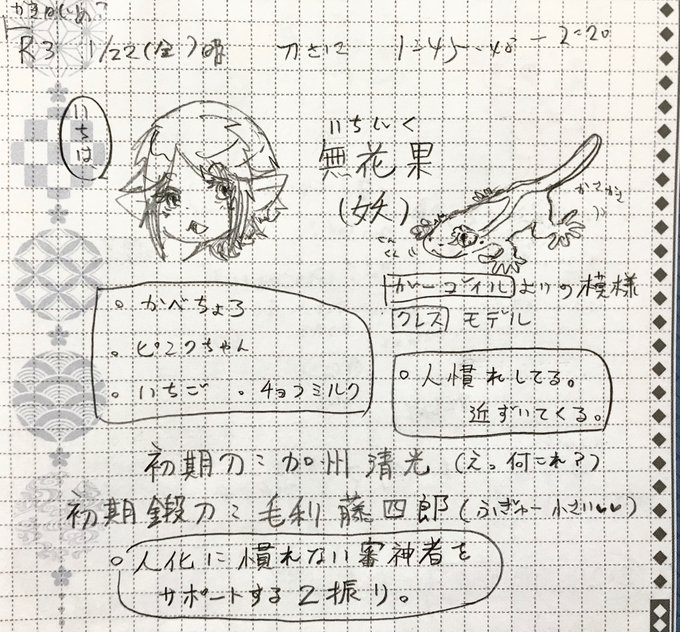 R3 1/22(金)晴 刀さに 1=45~48-2=20
いちは
いちじく
無花果
(妖)
かさかさ
くんくん
ガーゴイルよりの模様
クレスモデル
。かべちょろ
。ピンクちゃん
。いちご 。チョコミルク
。人慣れしてる。
近ずいてくる。
初期刀:加州清光(えっ何これ?)
初期鍛刀:毛利藤四郎(ふぎゃー小さい♥♥)
。人化に慣れない審神者を
サポートする2振り。